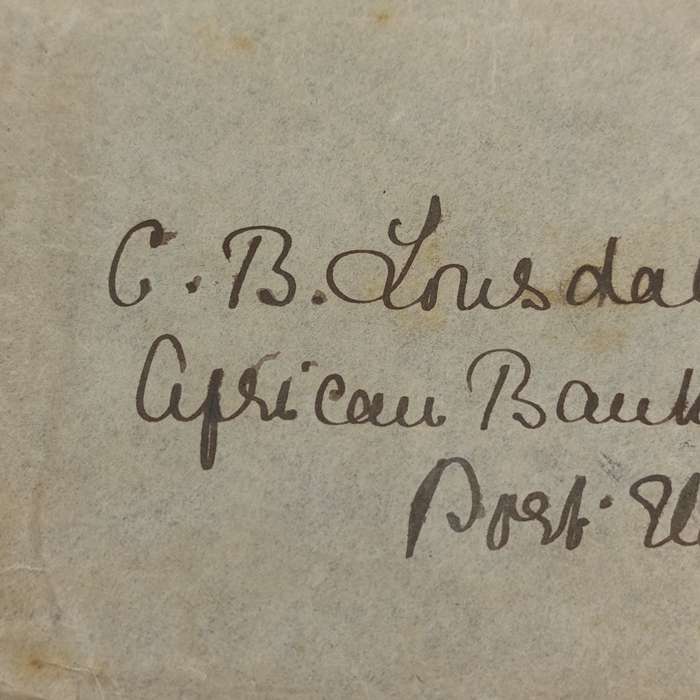 C. B. Lonsdal
African Bank
Port. El